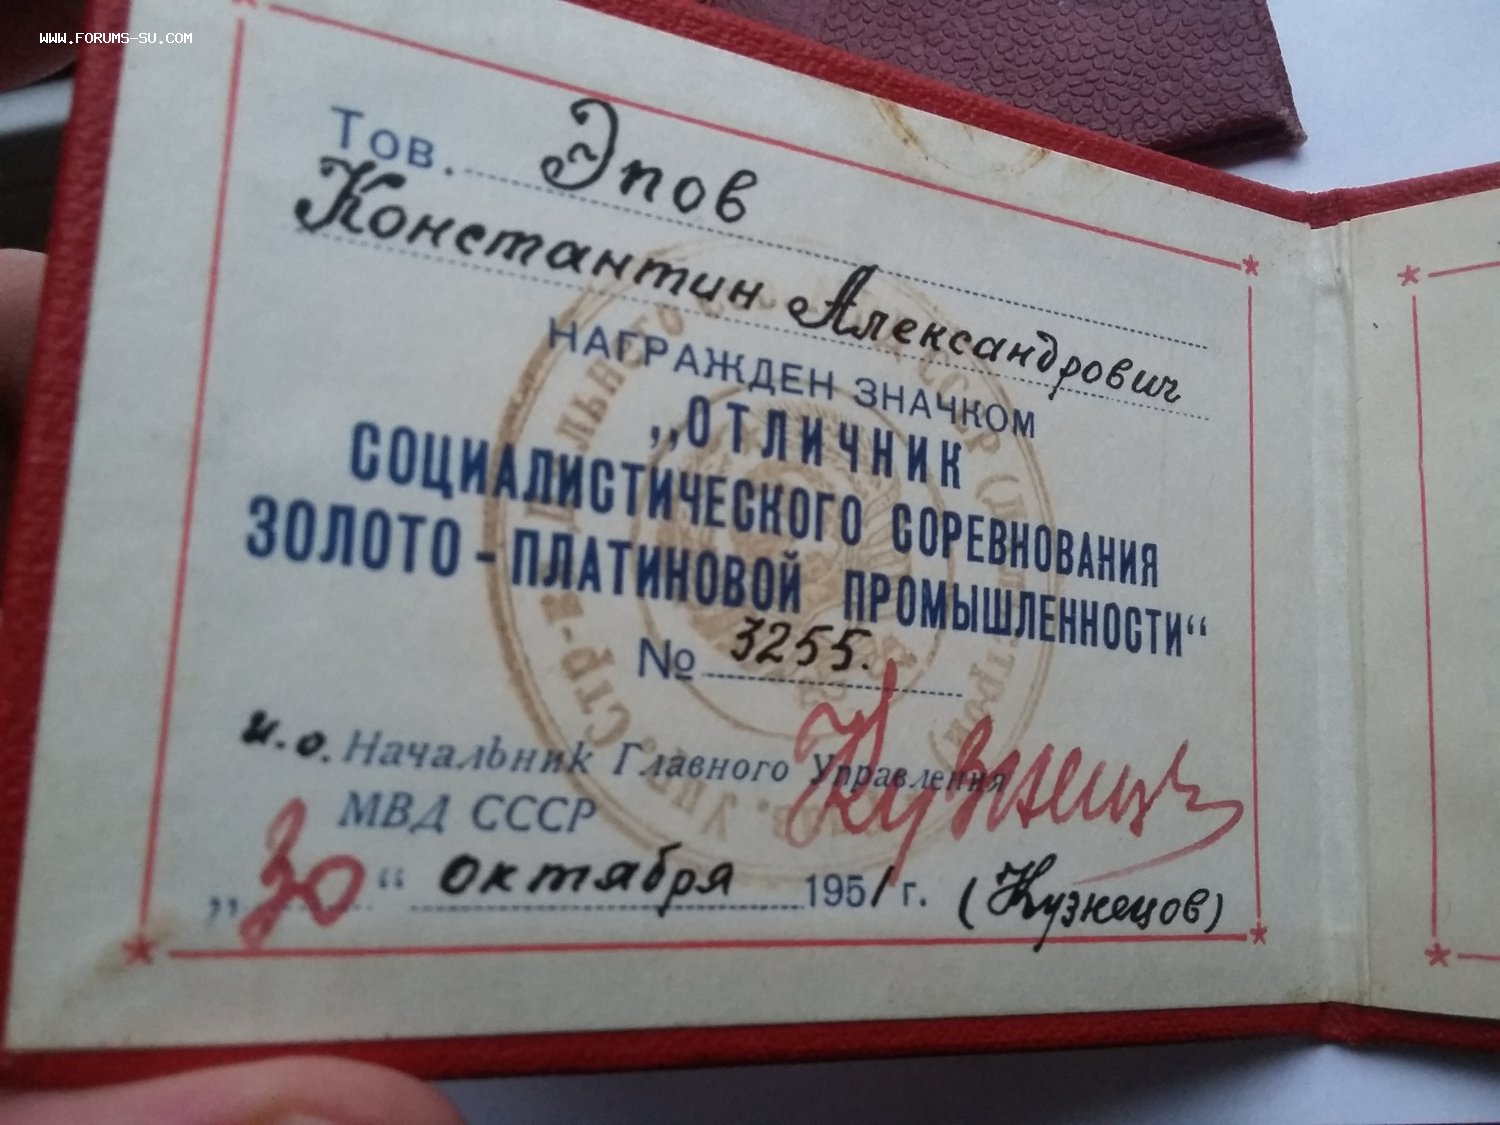 WWW.FORUMS-SU.COM
Тов. Эпов
Константин Александрович
НАГРАЖДЕН ЗНАЧКОМ
„ОТЛИЧНИК
СОЦИАЛИСТИЧЕСКОГО СОРЕВНОВАНИЯ
ЗОЛОТО-ПЛАТИНОВОЙ ПРОМЫШЛЕННОСТИ“
№ 3255.
и.о. Начальник Главного Управления
МВД СССР
„30“ октября 1951 г. (Кузнецов)